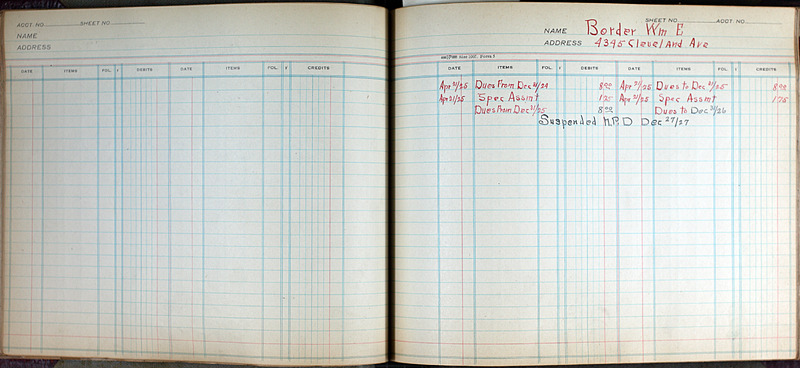 ACCT. NO. SHEET NO.
NAME
ADDRESS
DATE ITEMS FOL. √ DEBITS DATE ITEMS FOL. √ CREDITS
SHEET NO. ACCT. NO.
NAME Border Wm E
ADDRESS 4345 Cleveland Ave
DATE ITEMS FOL. √ DEBITS DATE ITEMS FOL. √ CREDITS
Apr 21/25 Dues From Dec 31/24 8.00 Apr 21/25 Dues to Dec 31/25 8.00
Apr 21/25 Spec Assmt 1.75 Apr 21/25 Spec Assmt 1.75
Dues From Dec 31/25 8.00 Dues to Dec 31/26
Suspended N.P.D Dec 27/27